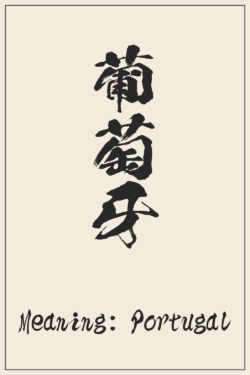 葡萄牙
Meaning: Portugal